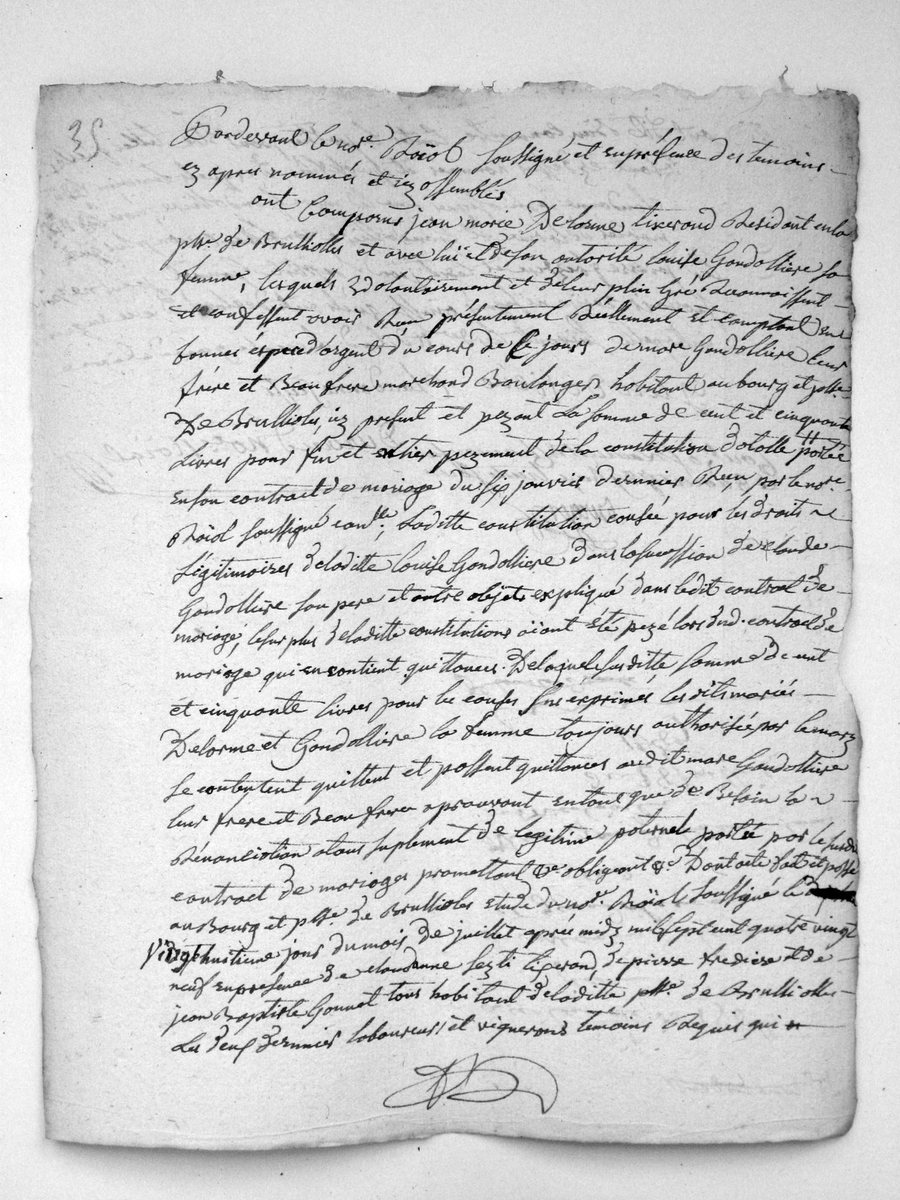 35
Pardevant le no.re Raïol soussigné et en presence des temoins
cz apres nommés et icz assemblés
ont Comparus jean marie Delorme tixerand Residant en la
psse. de Brulliolles et avec luï et de son autorité louise Gondolliere sa
femme, lesquels volontairement et de leur plein Gré Reconnaissent
et confessent avoir Reçu présentement Réellement et comptant en
bonnes éspece d'argent du cours de Ce jours de marc Gondolliere leur
frére et Beau frere marchand Boulanger habitant au bourg et psse.
De Brullioles, icz present et pezant La somme de cent et cinquante
Livres pour fin et entier pezement de la constitution dotalle portée
en son contract de mariage du six janvier dernier Reçu par le no.re
Raïol soussigné, Laditte constitution causée pour les droits
Légitimaires de laditte louise Gondolliere dans la succession de claude
Gondolliere son pere et autre objets expliqué dans ledit contract de
mariage, le surplus de laditte constitutions aïant été pezé lors dud. contract de
mariage qui en contient quittances. De laquelle susditte somme de cent
et cinquante livres pour les causes sus exprimes les dits mariés
Delorme et Gondolliere la femme toujours authorisée par le marz
se contentent quittent et passent quittances audit marc Gondolliere
leur frere et Beau frere aprouvant en tant que de Besoin la
Rénonciation a tous suplement de legitime paternele portée par le susdit
contract de mariages promettant &c obligeant &c. Dont acte fait et passé
au Bourg et psse. de Brullioles etude du no.re Raïol soussigné le
Vingt huitieme jour du mois de juillet aprés midz mil sept cent quatre vingt
neuf en presence de claudanne tixerand, de pierre fredière et de
jean Baptiste Gonnet tous habitant de laditte psse. de Brulliolles
Les deux derniers laboureurs et vignerons témoins Requis qui